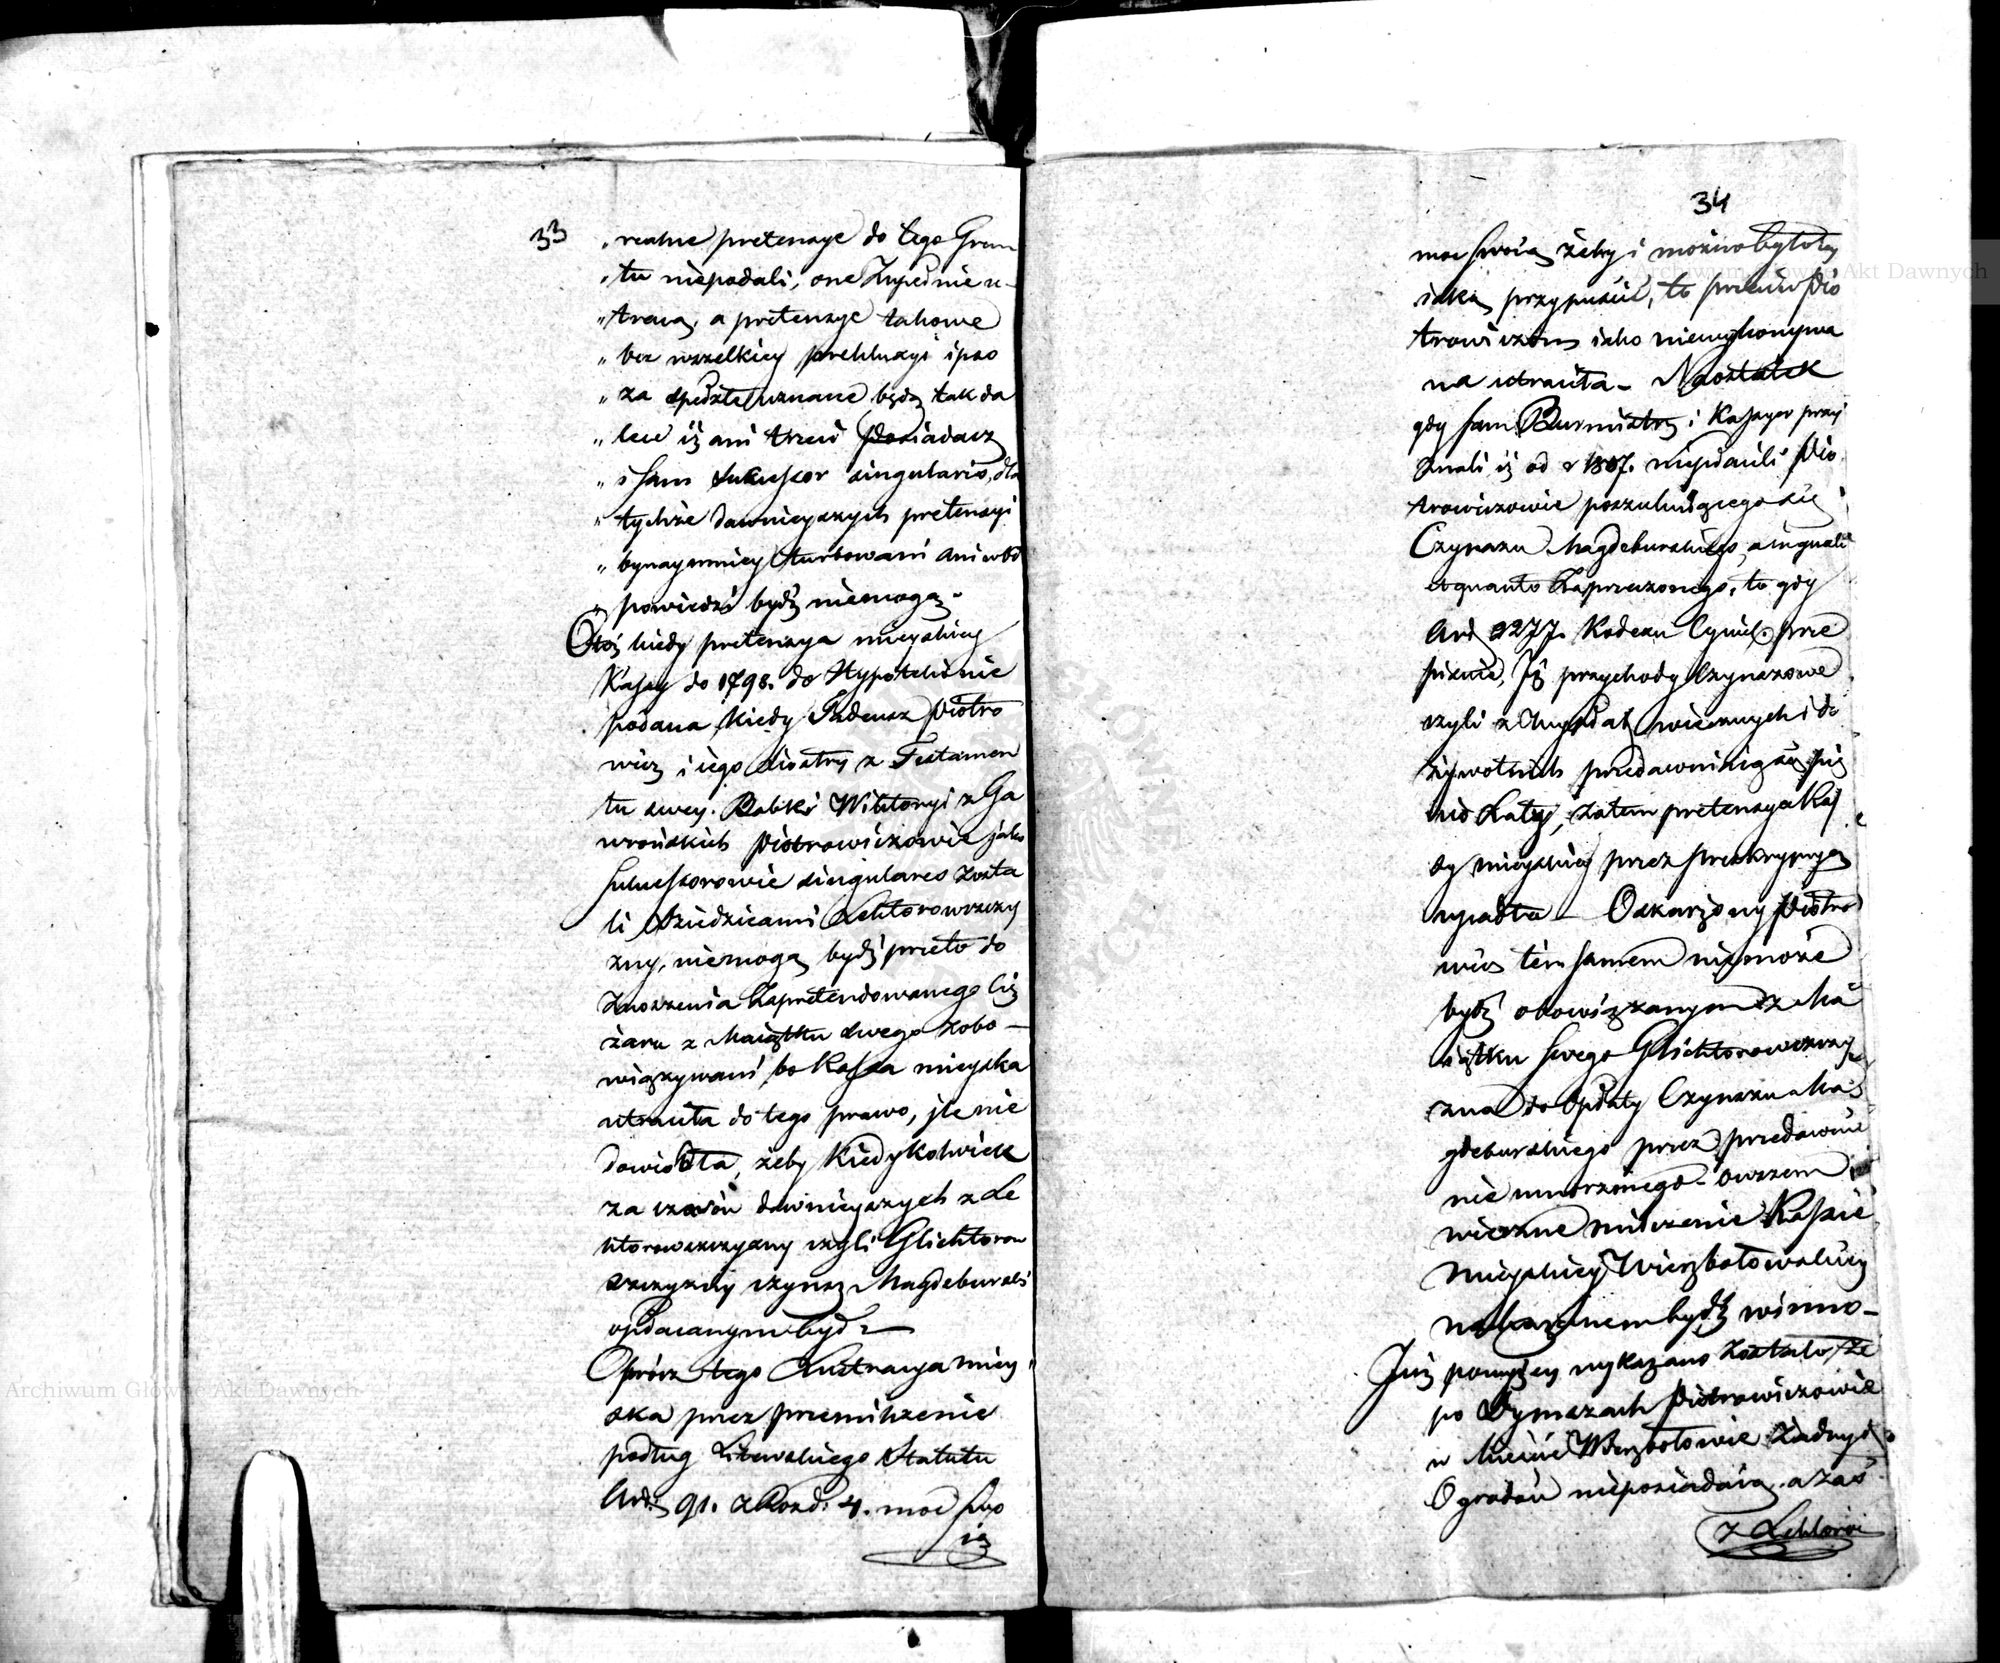 33
„ realne pretensye do tego Grun
„ tu niepodali, one Zupełnie u-
„ tracą, a pretensye takowe
„ bez wszelkiey prekluzyi ipso
„ za spedzte uznane będą tak da
„ lece iż ani trzeci Posiadacz
„ i sam Sukcessor singularis, dla
„ tychże dawnieyszych pretensyi
„ bynaymniey turbowani ani wod
„ powiedzi bydź niemogą.
Otóż kiedy pretensya mieyskiey
Kassy do 1798. do Hypoteki nie
podana, kiedy Tadeusz Piotro
wicz i iego siostry z Testamen
tu swey Babki Wiktoryi z Ga
wrońskich Piotrowiczowie jako
Sukcessorowie singulares zosta
li Dziedzicami Lektorowszczy
zny, niemogą bydź przeto do
Znoszenia Zapretendowanego Cię
żaru z Maiątku swego zobo-
wiązywani, bo Kassa mieyska
utraciła do tego prawo, jle nie
dowiodła, żeby kiedykolwiek
za czasów dawnieyszych z Le
ktorowszczyzny czyli Glichtorow
szczyzny czynsz Magdeburski
opłacanym był?
Oprócz tego Lustracya miey
ska przez przemilczenie
podług Litewskiego Statutu
Art. 91. z Rozd. 4. moc swo
ią
34
moc swoią żeby i można było ią
iaką przypuścić, to przeciw Pio
trowiczom iako niewykonywa
na utraciła - Naostatek
gdy sam Burmistrz i Kassyer przy
znali iż od r 1807. niepłacili Pio
trowiczowie poszukuiącego się
Czynszu Magdeburskiego, a in quali
et quanto Zaprzeczonego, to gdy
Art 2277. Kodexu Cywil: prze
pisuie, Iż przychody Czynszowe
czyli z wypłat wiecznych i do
żywotnich przedawniaią się pię
cio Laty, zatem pretensya Kas
sy mieyskiey przez preskrypcyą
upadła - Oskarżony Piotro
wicz tem samem niemoże
bydź obowiązanym z Ma
iątku swego Glichtorowszczy
zna do Opłaty Czynszu Ma
gdeburskiego przez przedawnie
nie umorzonego - owszem
wieczne milczenie Kassie
Mieyskiey Wierzbołowskiey
nakazanem bydź winno -
Już powyżey wykazano zostało, że
po Dymszach Piotrowiczowie
w Mieście Wierzbołowie żadnych
Ogrodów nieposiadaią, a zaś
z Lektorow
Archiwum Główne Akt Dawnych
Archiwum Główne Akt Dawnych